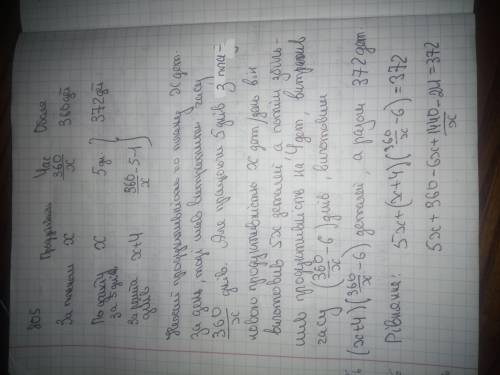 805
Продуктивн. Час Обсяг
За планом x 360/x 360 дет
По плану за 5 днів x 5 дн. } 372 дет
За решта днів x+4 360/x - 5 - 1
продуктивність по плану x дет.
за день, тоді мав витратити часу
360/x днів. Але працюючи 5 днів з пла-
новою продуктивністю x дет/день він
виготовив 5x деталей а потім збіль-
шив продуктивність на 4 дет, витратив
часу (360/x - 6) днів, виготовивши
(x+4)(360/x - 6) деталей, а разом 372 дет.
Рівняння: 5x+(x+4)(360/x - 6) = 372
5x + 360 - 6x + 1440/x - 24 = 372